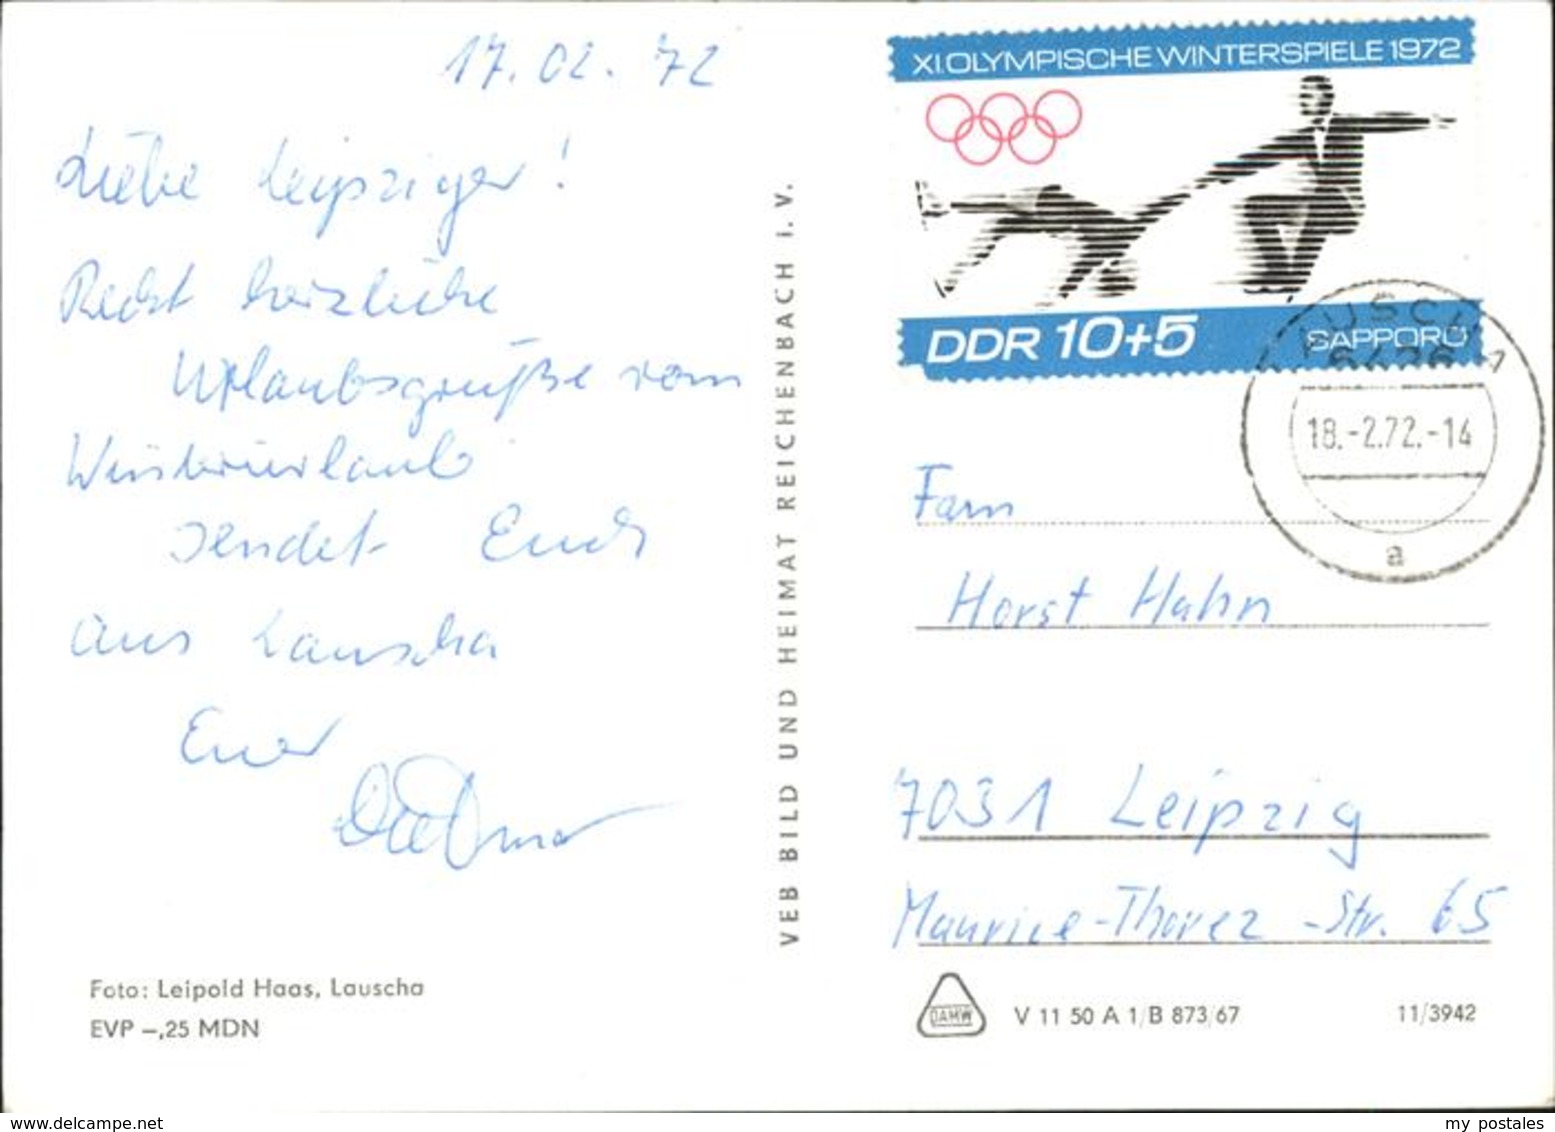 17.02.72
Liebe Leipziger!
Recht herzliche
Urlaubsgrüße vom
Winterurlaub
sendet Euch
aus Lauscha
Euer
Dietmar
Foto: Leipold Haas, Lauscha
EVP –,25 MDN
VEB BILD UND HEIMAT REICHENBACH I. V.
XI. OLYMPISCHE WINTERSPIELE 1972
DDR 10+5
SAPPORO
LAUSCHA 1
6426
18.-2.72.-14
a
Fam
Horst Hahn
7031 Leipzig
Maurice-Thorez-Str. 65
DAMW
V 11 50 A 1/B 873/67
11/3942
delcampe.net
my_postales